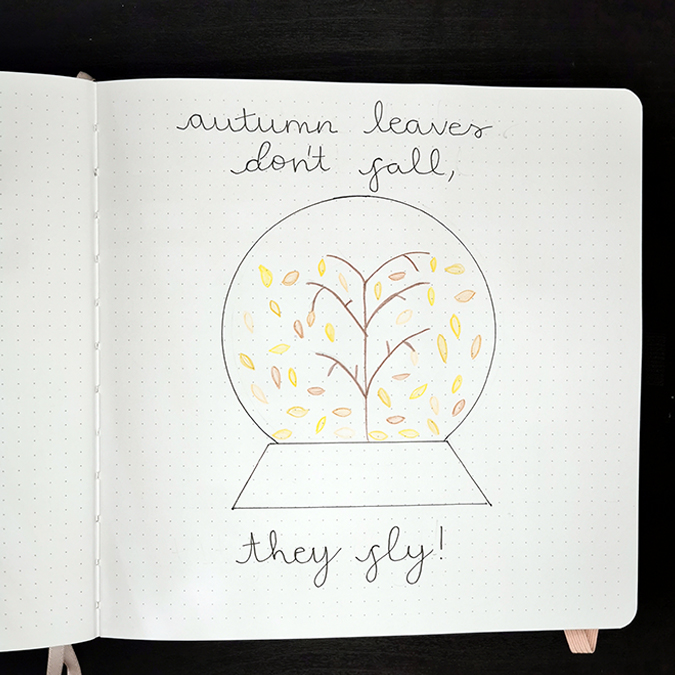 autumn leaves
don't fall,
they fly!